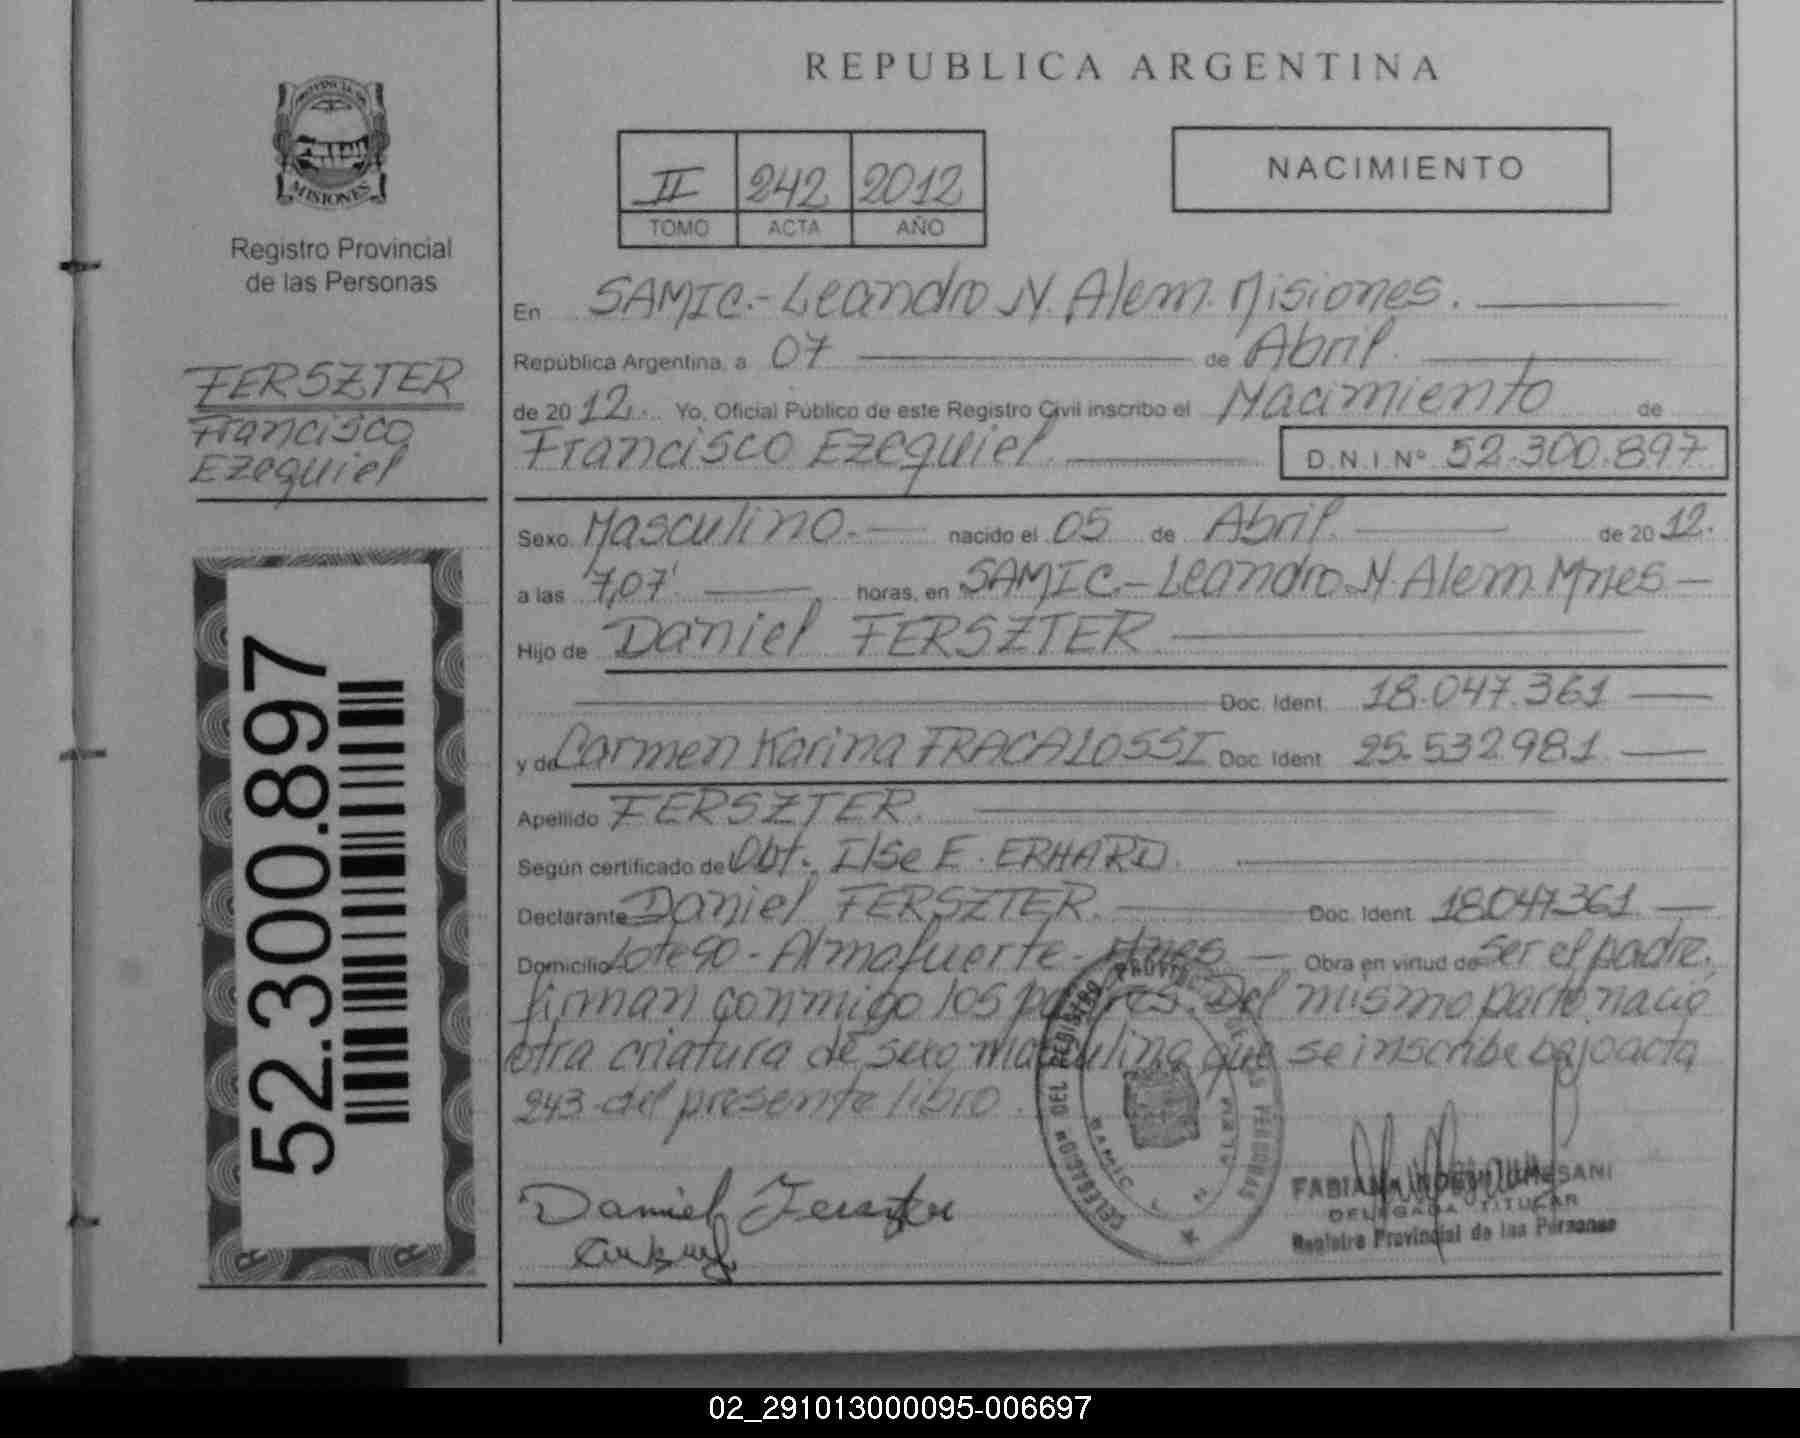 REPUBLICA ARGENTINA
PROVINCIA DE
MISIONES
Registro Provincial
de las Personas
II 242 2012
TOMO ACTA AÑO
NACIMIENTO
FERSZTER
Francisco
Ezequiel
En SAMIC.- Leandro N. Alem. Misiones.
República Argentina, a 07 de Abril.
de 20 12. Yo, Oficial Público de este Registro Civil inscribo el Nacimiento de
Francisco Ezequiel. D.N.I Nº 52.300.897
Sexo Masculino. nacido el 05 de Abril. de 20 12.
a las 7,07' horas, en SAMIC.- Leandro N. Alem. Mnes
Hijo de Daniel FERSZTER
Doc. Ident. 18.047.361
y de Carmen Karina FRACALOSSI Doc. Ident. 25.532.981
Apellido FERSZTER.
Según certificado de Obt. Ilse E. ERHARD.
Declarante Daniel FERSZTER. Doc. Ident. 18.047.361
Domicilio Lote 90 - Almafuerte - Mnes Obra en virtud de ser el padre.
firman conmigo los padres. Del mismo parto nació
otra criatura de sexo masculino que se inscribe bajo acta
243 del presente libro.
Daniel Ferszter
DELEGADA TITULAR
Registro Provincial de las Personas
52.300.897
02_291013000095-006697